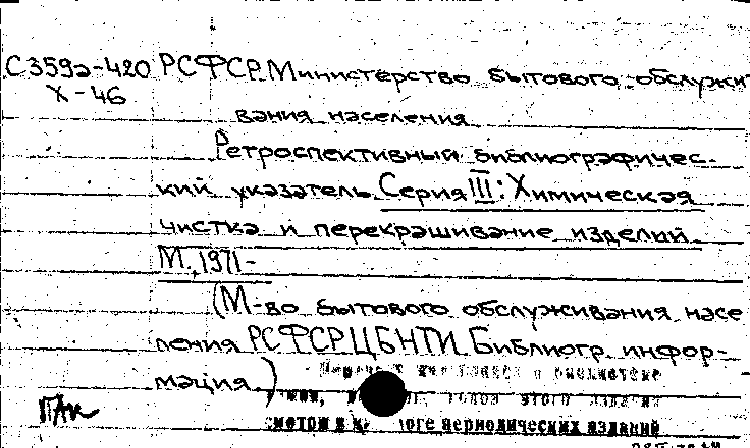 С359э-420 РСФСР. Министерство бытового обслужи
Х-46
вания населения
Ретроспективный библиографичес-
кий указатель. Серия III: Химическая
чистка и перекрашивание изделий.
М., 1971-
(М-во бытового обслуживания насе
ления РСФСР. ЦБНТИ. Библиогр. инфор-
мация)
этого издания
периодических изданий